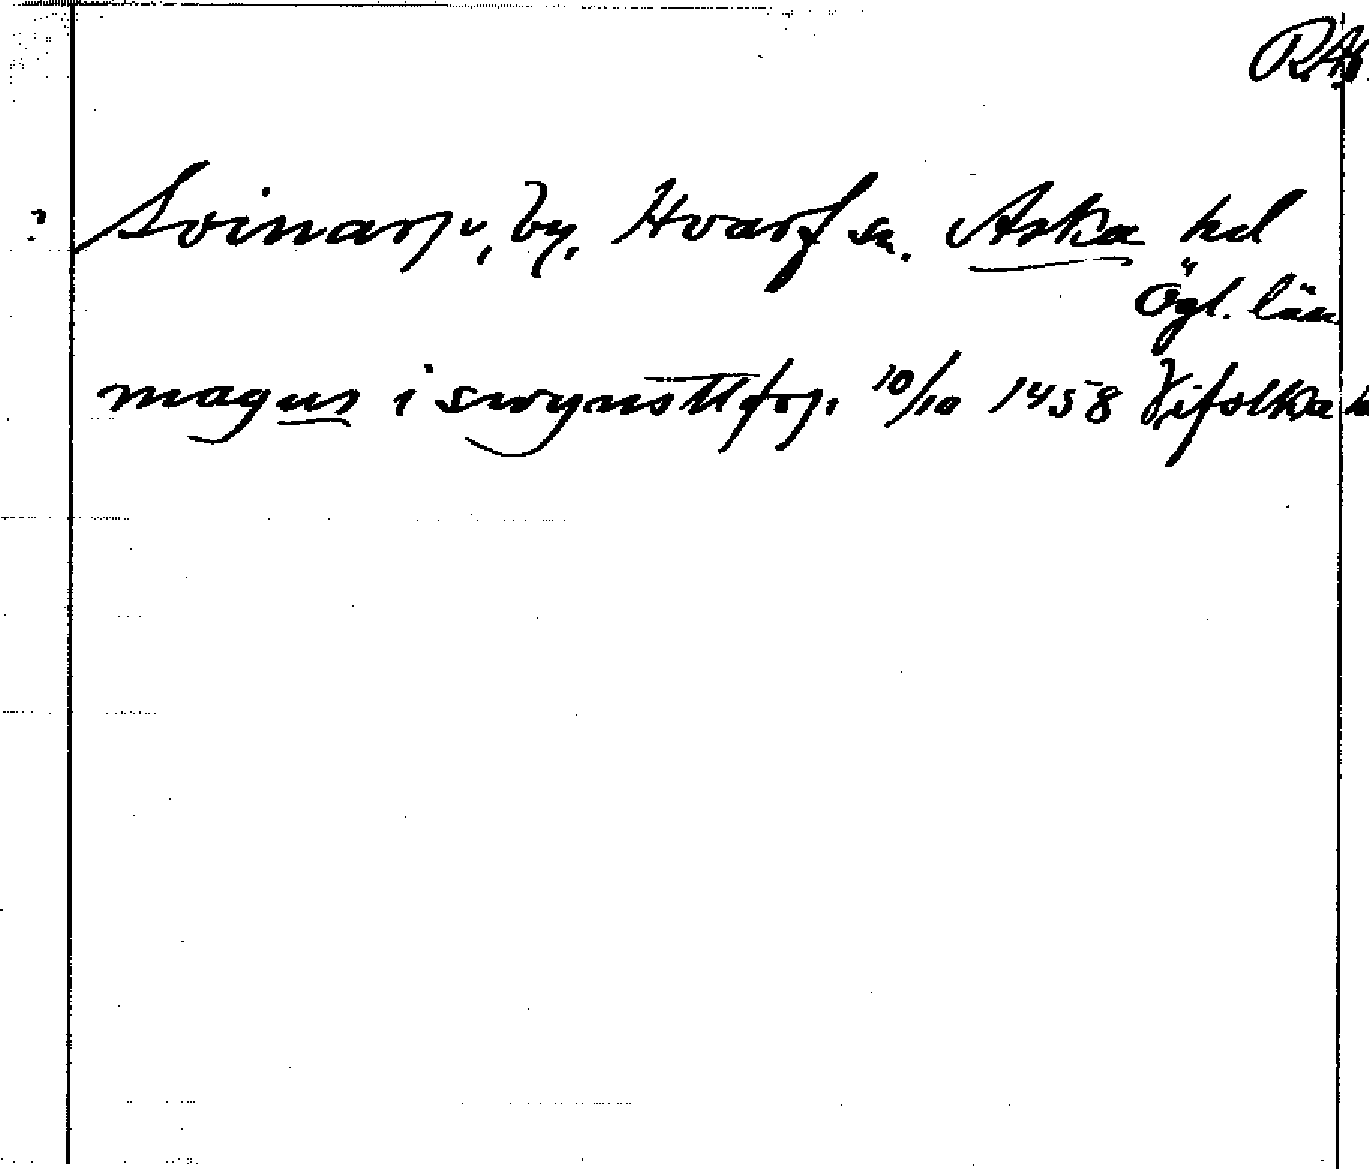 RA
? Svinarp, by, Hvarf sn. Aska hd
Ögl. län
magns i swynsttþorp. 10/10 1458 Vifolka